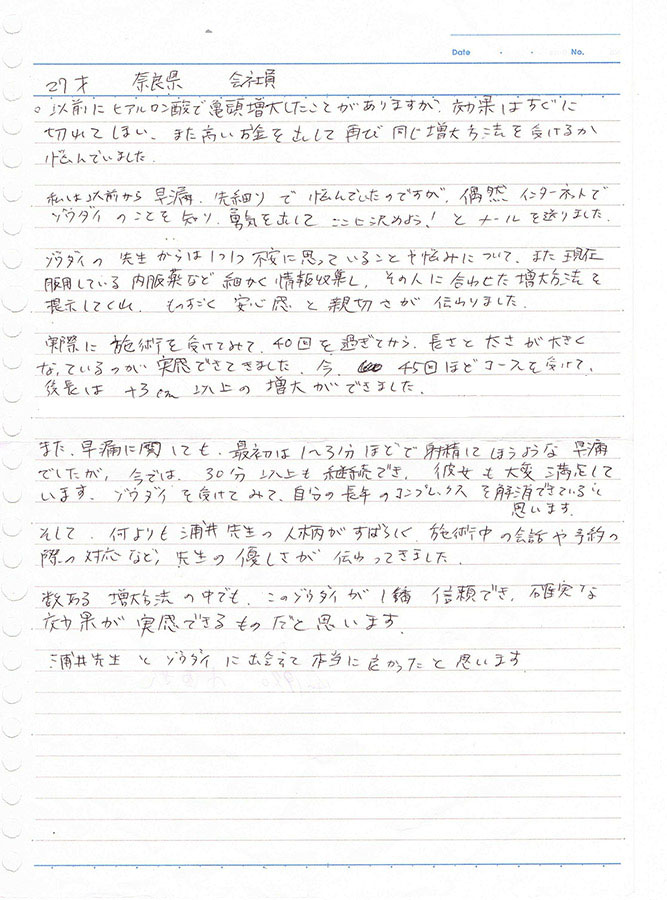 Date ・ ・ No.
27才 奈良県 会社員
○ 以前にヒアルロン酸で亀頭増大したことがありますが、効果はすぐに
切れてしまい、また高いお金を出して再び同じ増大方法を受けるか
悩んでいました。
私は以前から早漏、先細りで悩んでいたのですが、偶然インターネットで
ゾウダイのことを知り、勇気を出してここに決めよう!とメールを送りました。
ゾウダイの先生からは1つ1つ不安に思っていることや悩みについて、また現在
服用している内服薬など細かく情報収集し、その人に合わせた増大方法を
提示してくれ、ものすごく安心感と親切さが伝わりました。
実際に施術を受けてみて、40回を過ぎてから、長さと太さが大きく
なっているのが実感できてきました。今、45回ほどコースを受けて、
後長は+3cm以上の増大ができました。
また、早漏に関しても、最初は1〜3分ほどで射精してしまうような早漏
でしたが、今では、30分以上も継続でき、彼女も大変満足して
います。ゾウダイを受けてみて、自分の長年のコンプレックスを解消できていると
思います。
そして、何よりも浦井先生の人柄がすばらしく、施術中の会話や予約の
際の対応など、先生の優しさが伝わってきました。
数ある増大方法の中でも、このゾウダイが1番信頼でき、確実な
効果が実感できるものだと思います。
浦井先生とゾウダイに出会えて本当に良かったと思います。